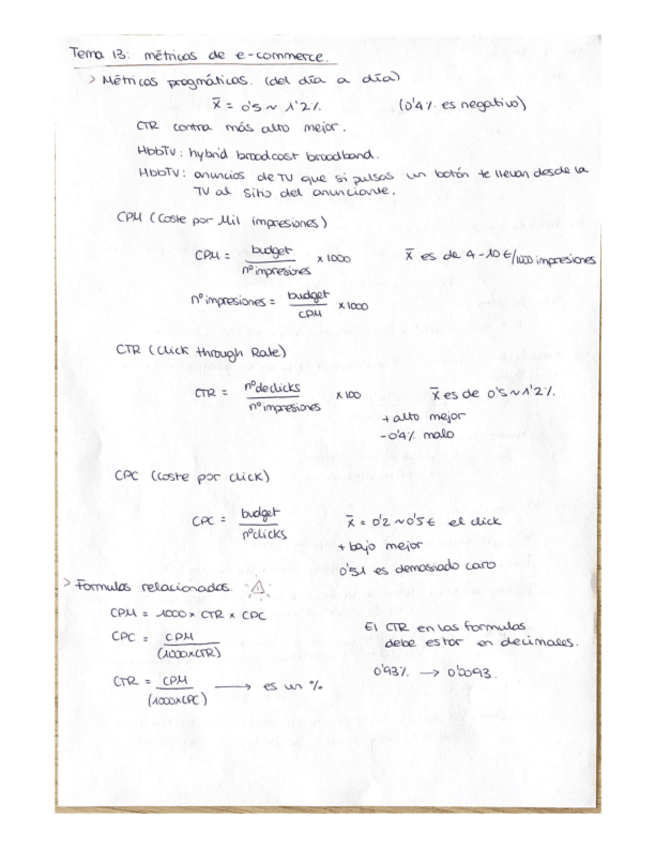 Tema 13: métricas de e-commerce.
> Métricas pragmáticas. (del día a día)
x̄ = 0'5 ~ 1'2%. (0'4% es negativo)
CTR contra más alto mejor.
HbbTV: hybrid broadcast broadband.
HbbTV: anuncios de TV que si pulsas un botón te llevan desde la
TV al sitio del anunciante.
CPM (Coste por Mil impresiones)
CPM = budget / nº impresiones x 1000 x̄ es de 4-10€/1000 impresiones
nº impresiones = budget / CPM x 1000
CTR (Click through Rate)
CTR = nº de clicks / nº impresiones x 100 x̄ es de 0'5 ~ 1'2%.
+ alto mejor
-0'4% malo
CPC (Coste por click)
CPC = budget / nº clicks x̄ = 0'2 ~ 0'5€ el click
+ bajo mejor
0'51 es demasiado caro
> Formulas relacionadas. ⚠
CPM = 1000 x CTR x CPC
CPC = CPM / (1000xCTR)
CTR = CPM / (1000xCPC) → es un %
El CTR en las formulas
debe estar en decimales.
0'93% → 0'0093.